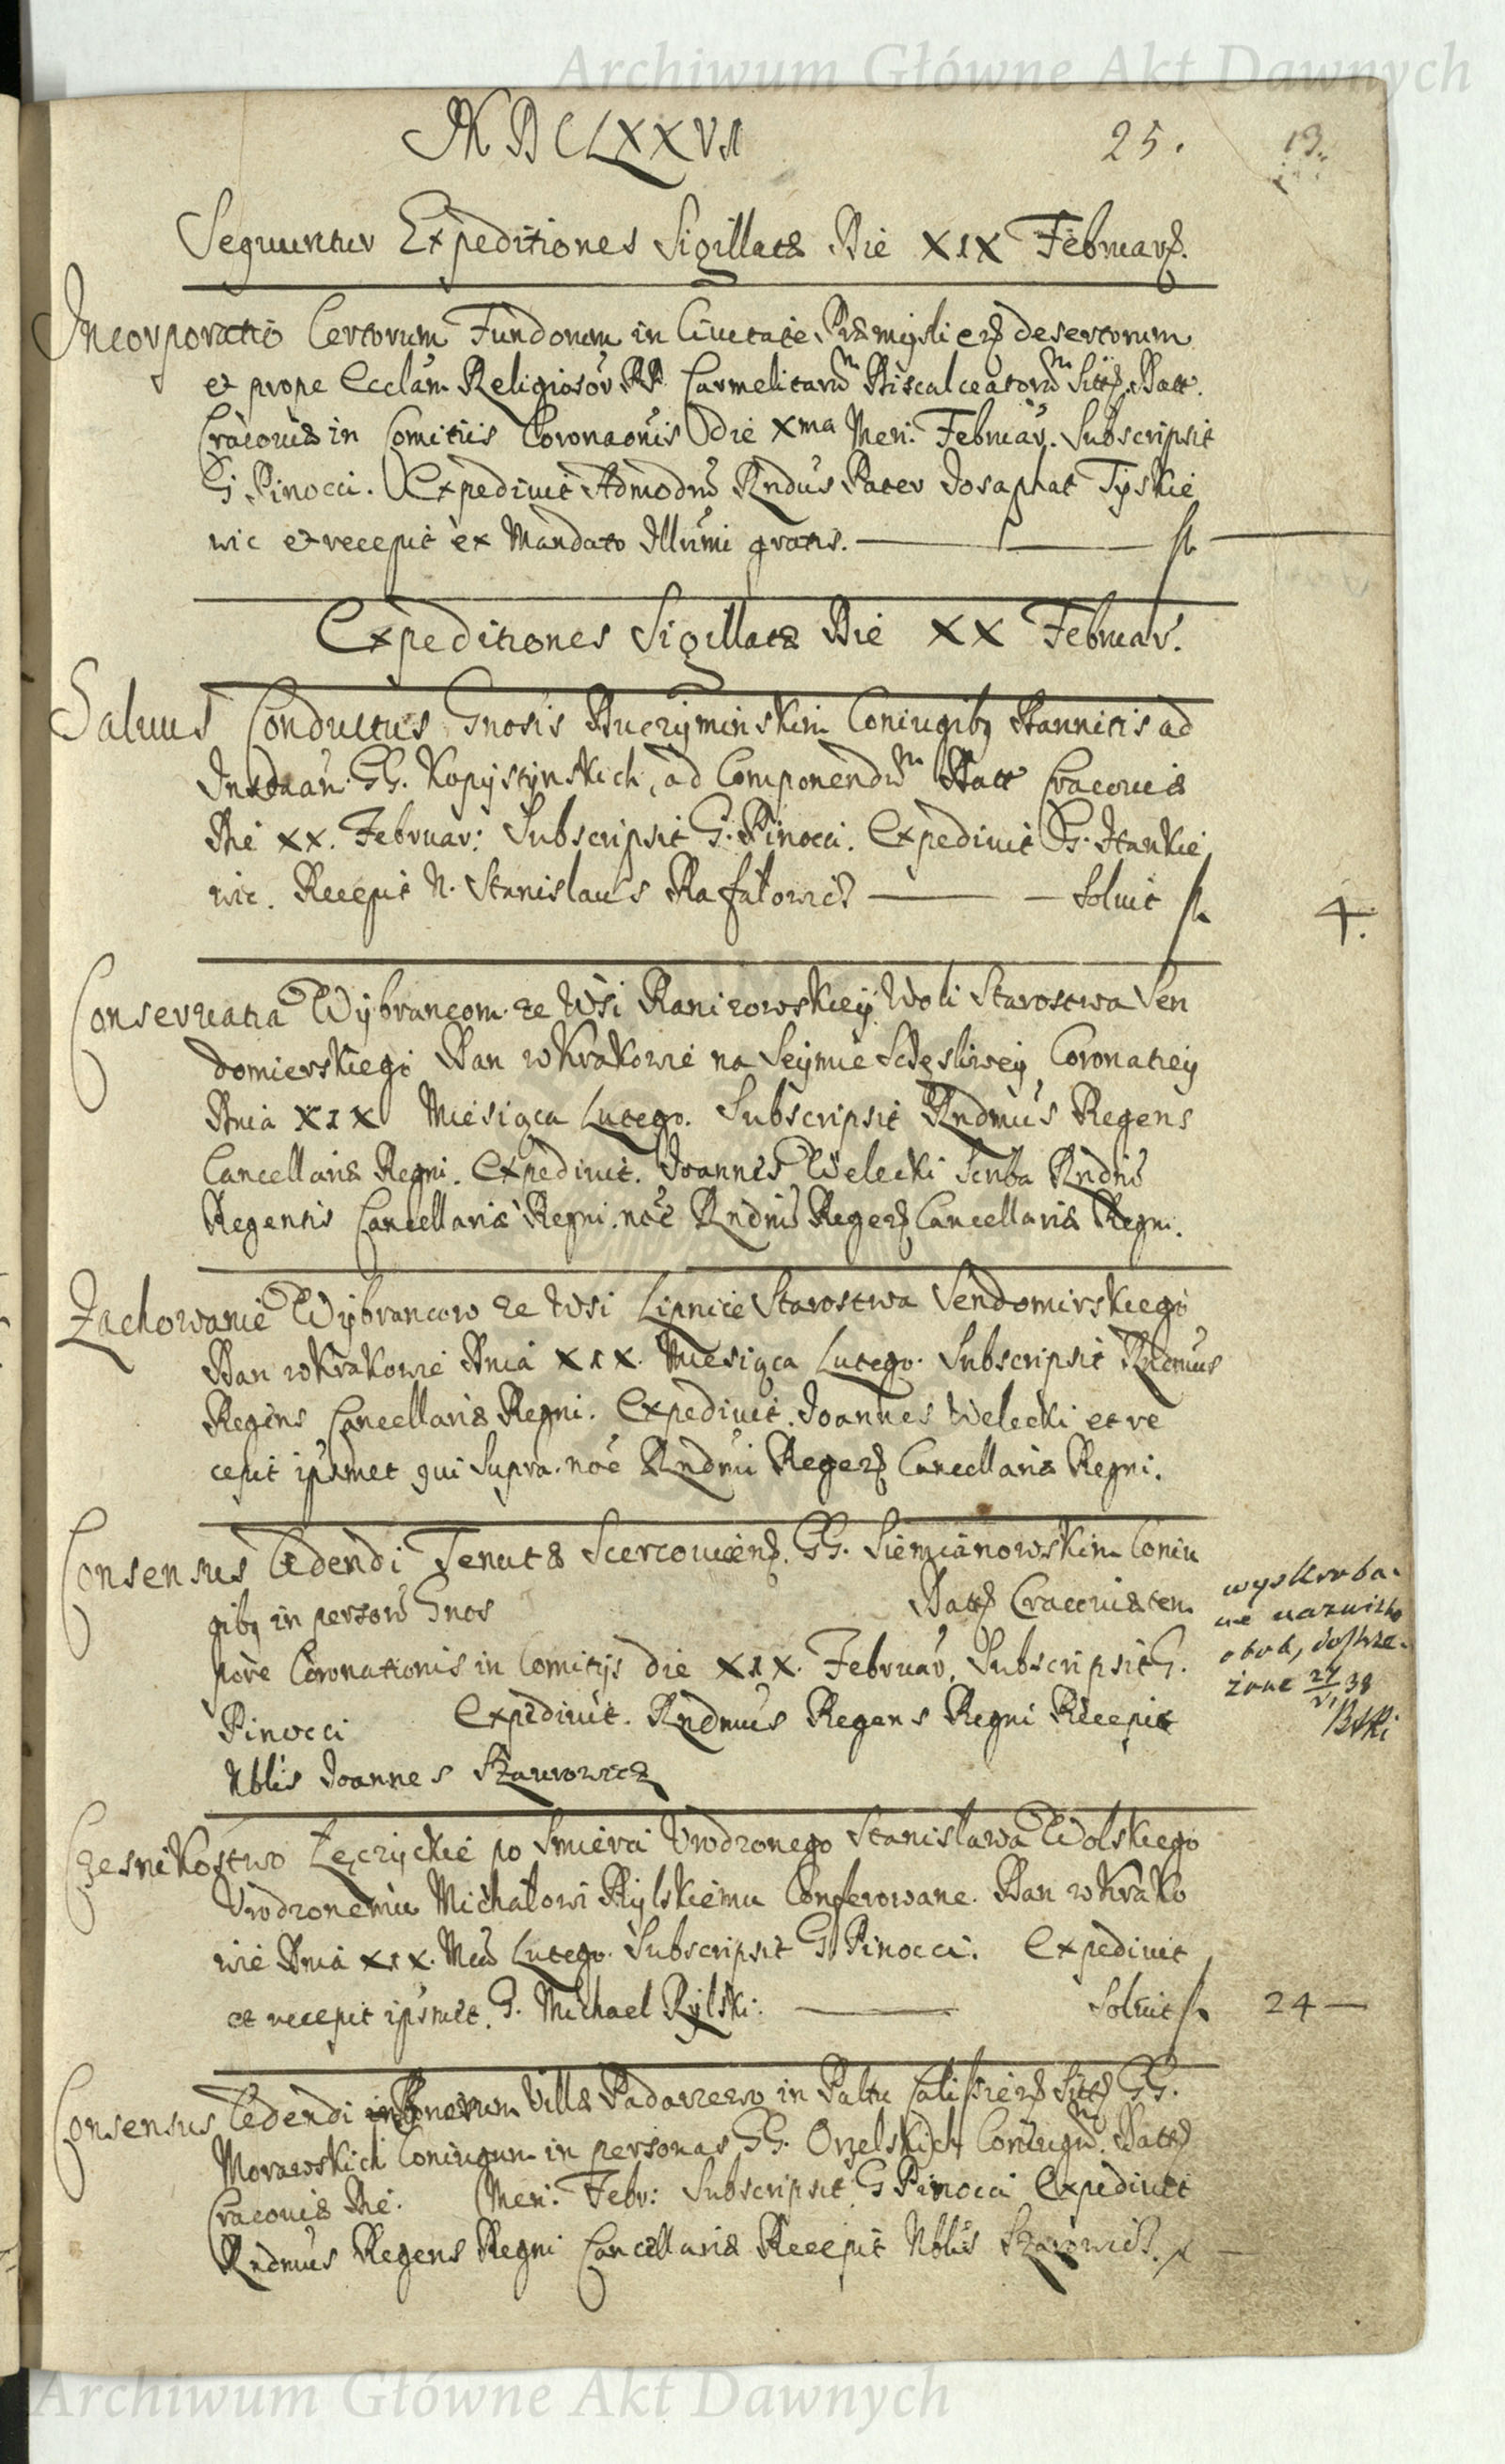 Archiwum Główne Akt Dawnych
MDCLXXVI
25.
13.
Sequuntur Expeditiones Sigillatæ Die XIX Februarÿ.
Incorporatio Certorum Fundorum in Civitate Præmysliens desertorum
et prope Ecclãm Religiosor RR Carmelitarum Discalceatorum Sitt. Datt.
Cracoviæ in Comitiis Coronaonis die Xma Men. Februar. Subscripsit
G. Pinocci. Expedivit Admodm Rndus Pater Josaphat Tyskie
wic et recepit ex Mandato Illrmi gratis. fl.
Expeditiones Sigillatæ Die XX Februar.
Salvus Conductus Gnosis Buczyminskim Coniugibq Bannitis ad
Instaan. GG. Kopystynskich, ad Componendum Datt Cracoviæ
Die XX. Februar: Subscripsit G. Pinocci. Expedivit G. Stankie
wic. Recepit N. Stanislaus Rafałowicz Solvit fl.
4.
Conservatia Wybrancom ze Wsi Ranizowskiey Woli Starostwa Sen
domierskiego Dan w Krakowie na Seymie Sczęsliwey Coronatiey
Dnia XIX Miesiąca Lutego. Subscripsit Rndmus Regens
Cancellariæ Regni. Expedivit. Joannes Wielecki Scriba Rndmi
Regentis Cancellariæ Regni. noe Rndmi Regens Cancellariæ Regni.
Zachowanie Wybrancow ze Wsi Lipnice Starostwa Sendomirskiego
Dan w Krakowie Dnia XIX. Miesiąca Lutego. Subscripsit Rndmus
Regens Cancellariæ Regni. Expedivit. Joannes Wielecki et re
cepit ipsmet qui supra. noe Rndmi Regens Cancellariæ Regni.
Consensus Cedendi Tenutæ Scercoviens. GG. Siemianowskim Coniu
gibq in person Gnos Datt Cracoviæ tem
pore Coronationis in Comitijs die XIX. Februar. Subscripsit G.
Pinocci Expedivit. Rndmus Regens Regni Recepit
Nblis Joannes Szaurowicz
wyskroba-
ne nazwisko
osob, dostrze-
żone 24/VI 38
Czesnikostwo Łęczyckie po Smierci Urodzonego Stanisława Wolskiego
Urodzonemu Michałowi Rylskiemu Conferowane. Dan w Krako
wie Dnia XIX. Mca Lutego. Subscripsit G Pinocci. Expedivit
et recepit ipsmet. G. Michael Rylski. Solvit fl.
24 —
Consensus Cedendi Bonorum Villæ Padarzewo in Paltu Calissiens Sitt GG.
Morawskich Coniugum in personas GG. Orzelskich Coniugum. Datt
Cracoviæ Die. Men: Febr: Subscripsit G Pinocci Expedivit
Rndmus Regens Regni Cancellariæ Recepit Nblis Szarowicz. fl —
Archiwum Główne Akt Dawnych